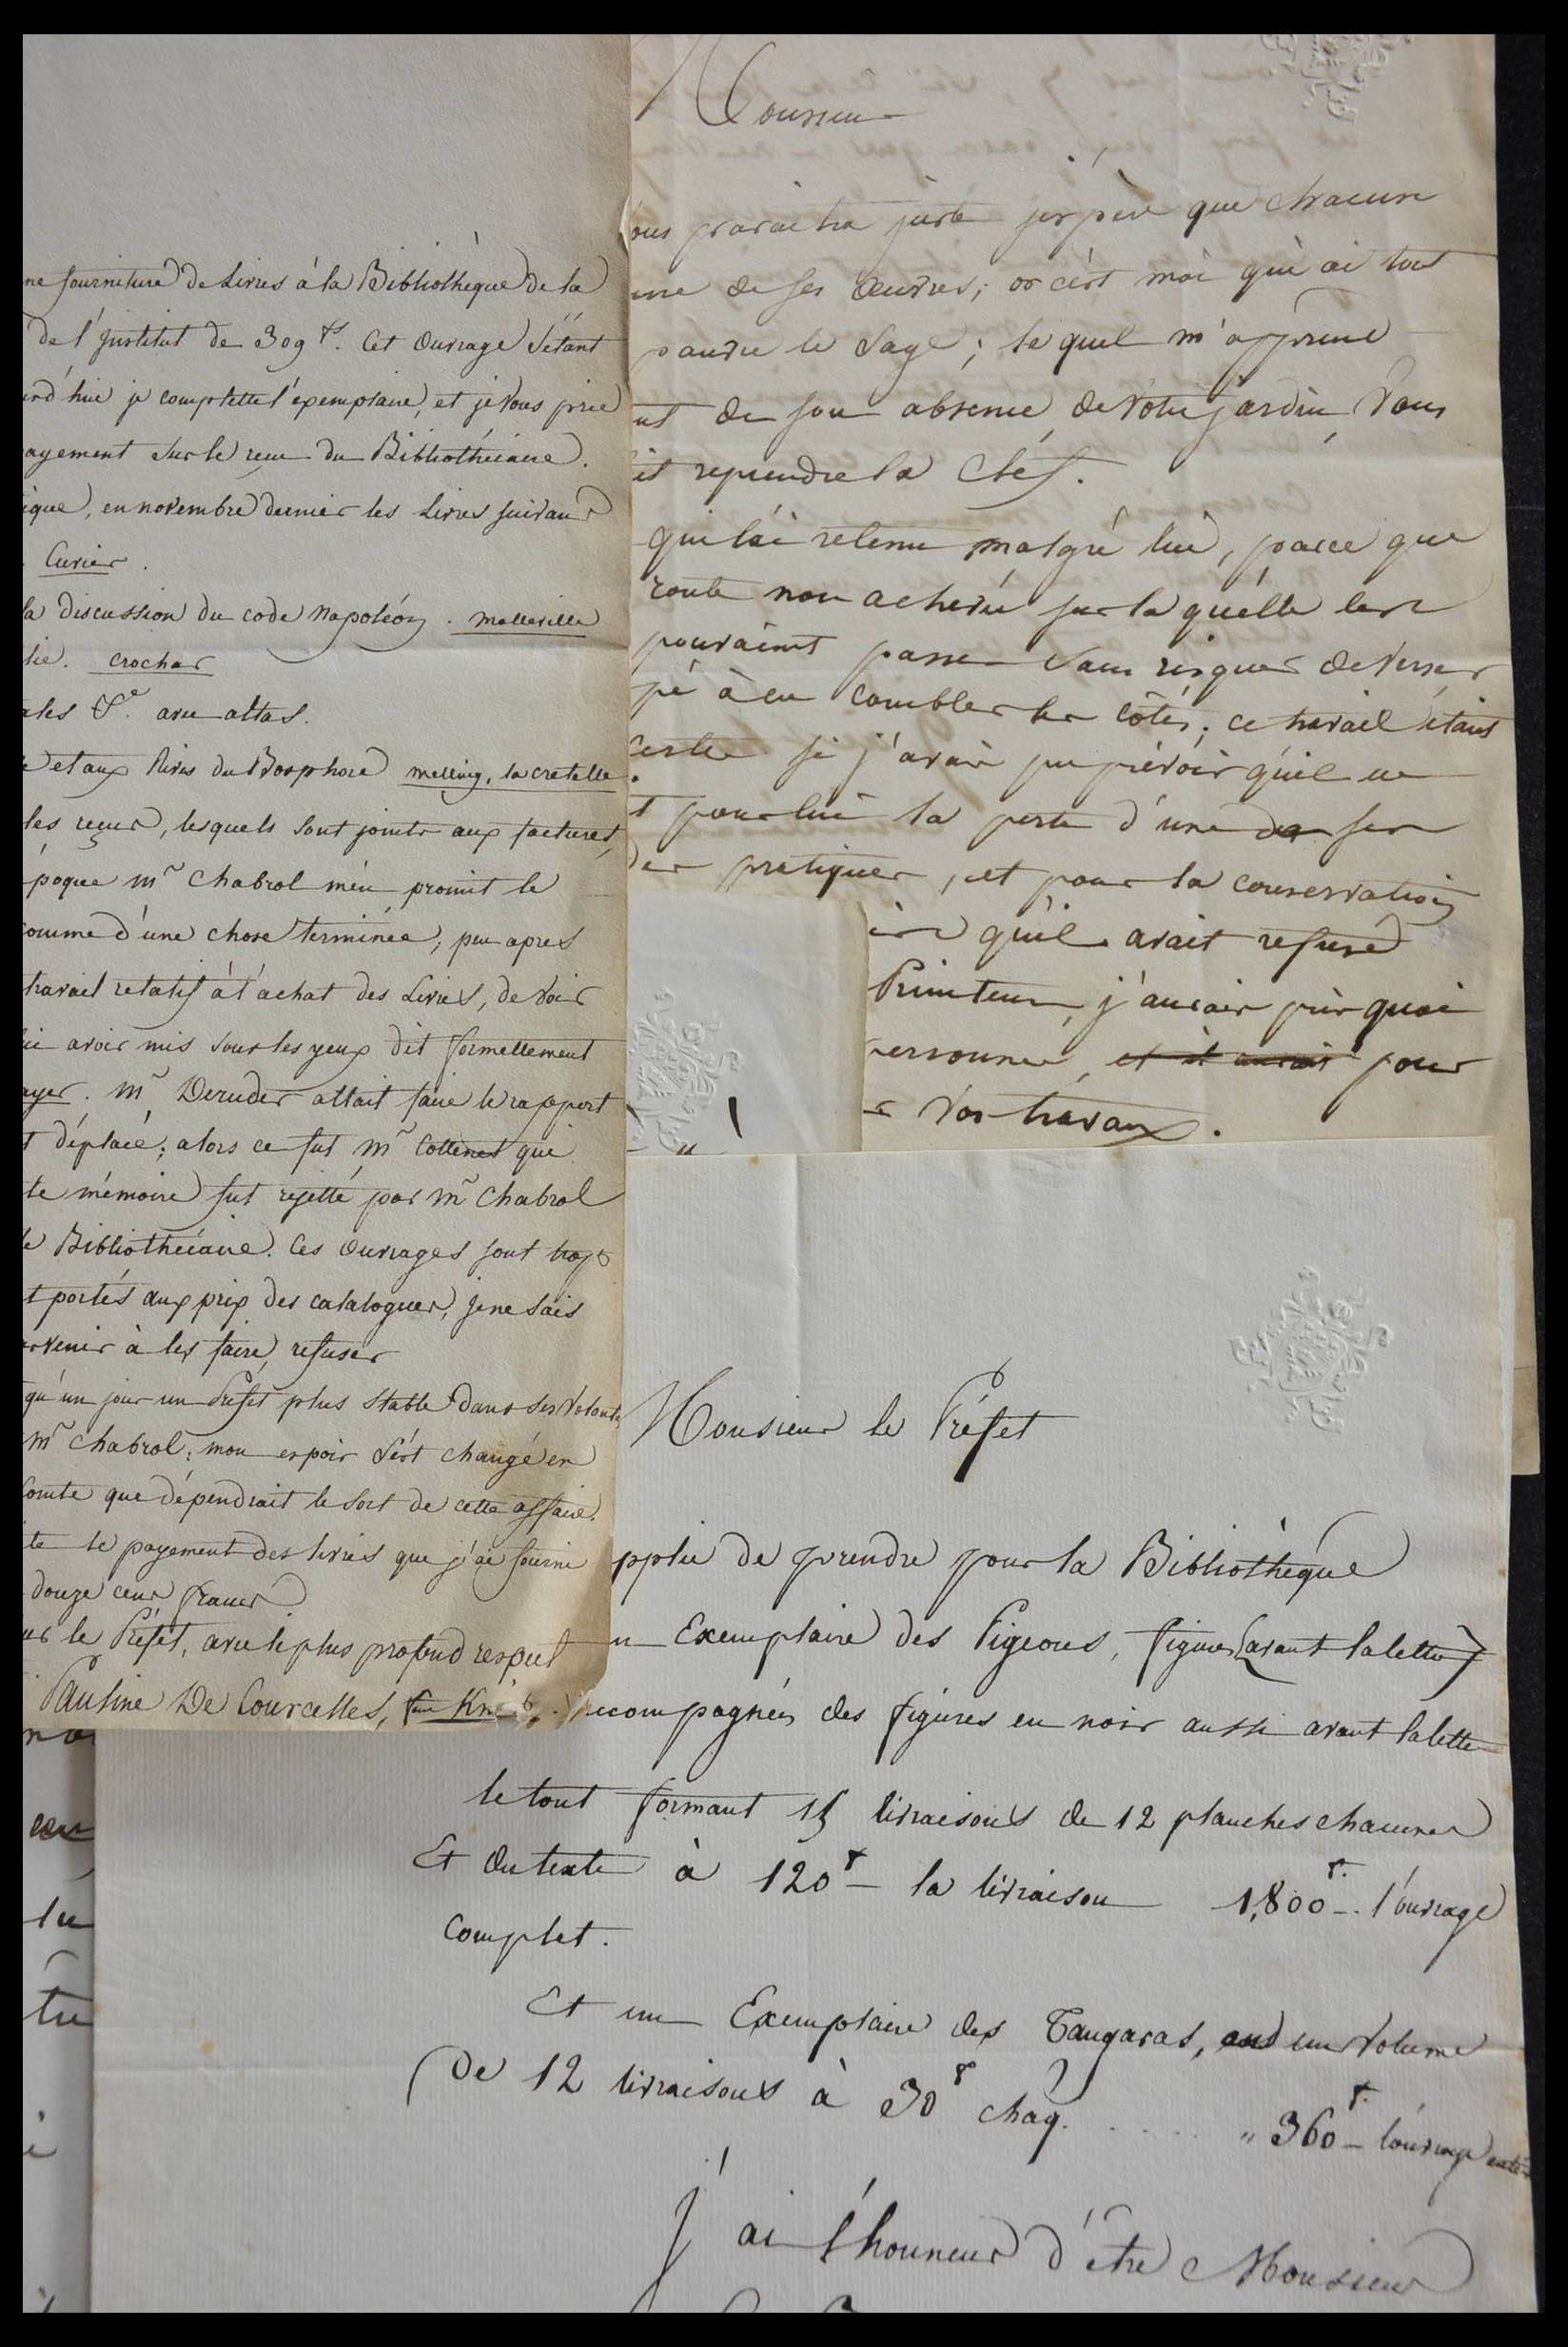 ne fourniture de Livres à la Bibliothèque de la
de l'institut de 309 fs. Cet Ouvrage S'étant
urd'hui je complette l'éxemplaire, et je Vous prie
ayement Sur le reçu du Bibliothécaire.
ique, en novembre dernier les Livres suivans
Cuvier.
la discussion du code Napoléon. Malleville
lie. Crochar
ales &c. avec atlas.
e et aux Rives du Bosphore melling, la cretelle.
les reçus, lesquels Sont joints aux factures,
époque Mr Chabrol m'en promit le
comme d'une chose terminée; peu apres
travail relatif à l'achat des Livres, de Voir
avoir mis Sous les yeux dit formellement
ayer. Mr Deruder allait faire le rapport
t déplacé; alors ce fut Mr Cottenet qui
te mémoire fut rejetté par Mr Chabrol
e Bibliothécaire. Ces Ouvrages sont trop
t portés aux prix des catalogues, je ne Sais
rvenir à les faire refuser
qu'un jour un Préfet plus Stable dans Ses Volontés
Mr Chabrol: mon espoir S'est changé en
Comte que dépendrait le Sort de cette affaire.
te le payement des livres que j'ai fourni
douze cens francs
ur le Préfet, avec le plus profond respect
Pauline De Courcelles, fme Knip.
Monsieur
ous paraitra juste j'espère que Chacun
une de ses Oeuvres; or c'est moi qui ai tout
pauvre le Sage; le quel m'apprend
nt de son absence, de Votre jardin, Vous
it reprendre la Clef.
qui l'ai retenu malgré lui, parce que
route non achevée sur laquelle les
pouvaient passer Sans risquer de Verser
pé à en combler les Côtés; ce travail étant
Certes si j'avais pu prévoir qu'il en
t pour lui la perte d'une de ses
des pratiques, et pour la conservation
qu'il avait refusé
Printems, j'aurais pris quoi
personne, et il aurait pour
r Vos travaux.
Monsieur le Préfet
pplie de prendre pour la Bibliothèque
n Exemplaire des Pigeons, figures (avant la lettre)
ccompagnées des figures en noir aussi avant la lettre
le tout formant 15 livraisons de 12 planches chacunes
Et du texte à 120 f - la livraison 1,800 f. - l'ouvrage
Complet.
Et un Exemplaire des Tangaras, un Volume
De 12 livraisons à 30 f chaq. . . . . . " 360 f. - l'ouvrage entier
J'ai l'honneur d'être Monsieur